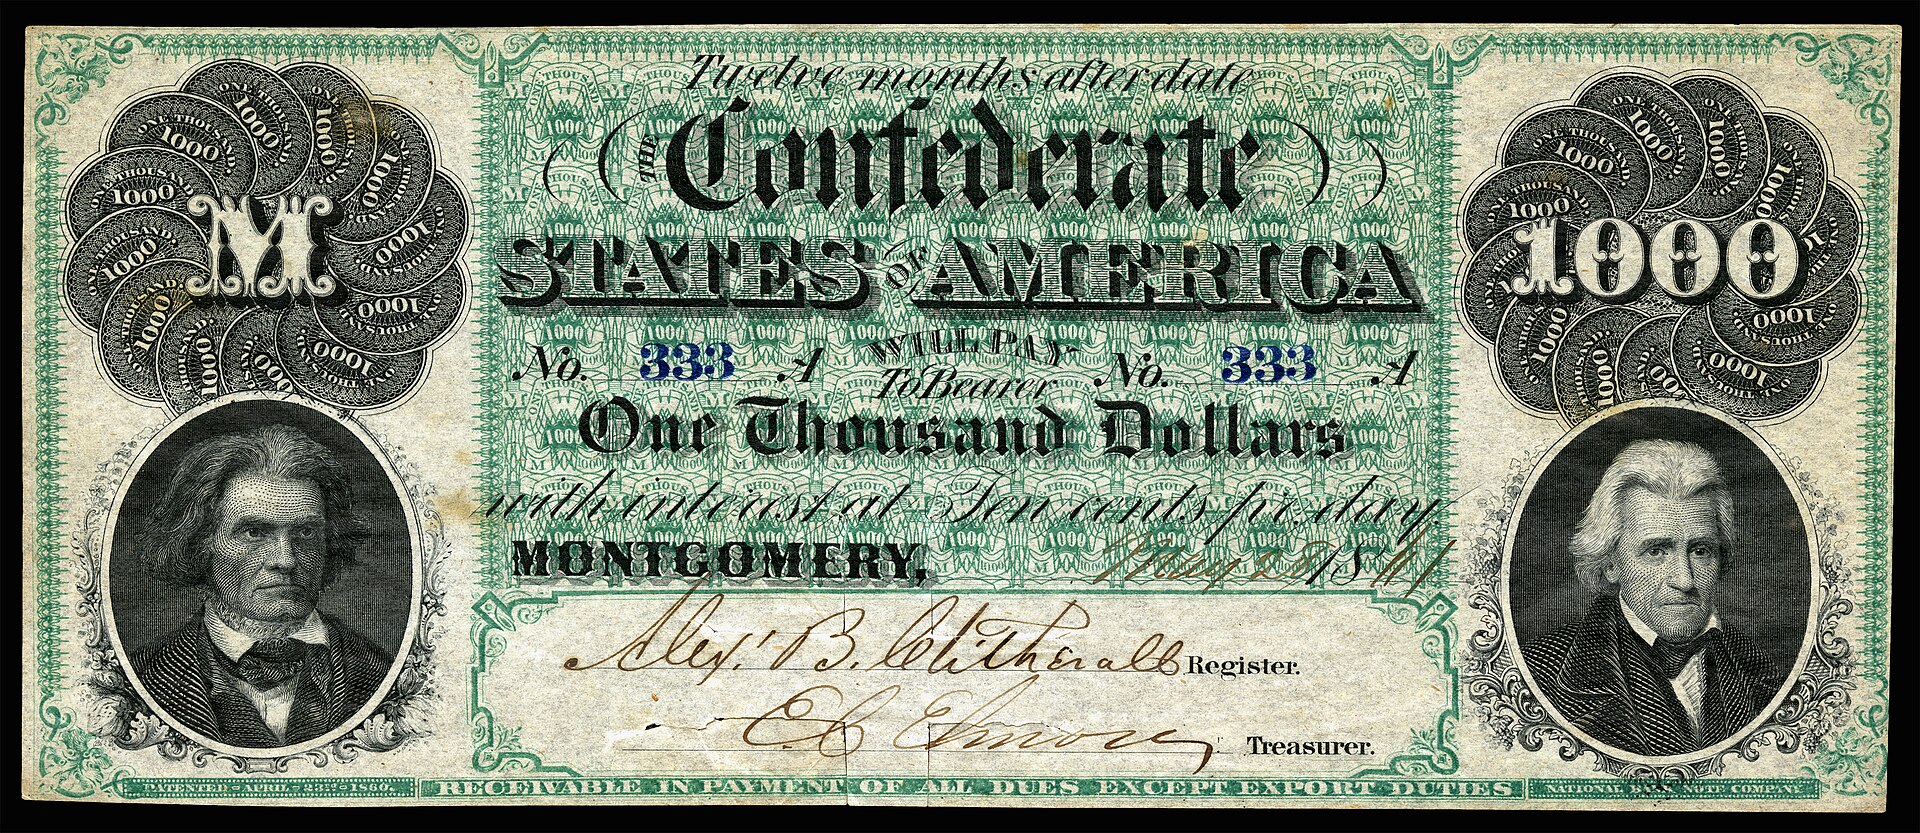 Twelve months after date
THE Confederate
STATES OF AMERICA
No. 333 A WILL PAY No. 333 A
To Bearer
One Thousand Dollars
with interest at Ten cents pr. day.
MONTGOMERY, May 28 1861
Alex. B. Clitherall Register.
E C Elmore Treasurer.
M
1000
ONE THOUSAND
1000
PATENTED APRIL 23RD 1860.
RECEIVABLE IN PAYMENT OF ALL DUES EXCEPT EXPORT DUTIES
NATIONAL BANK NOTE COMPANY